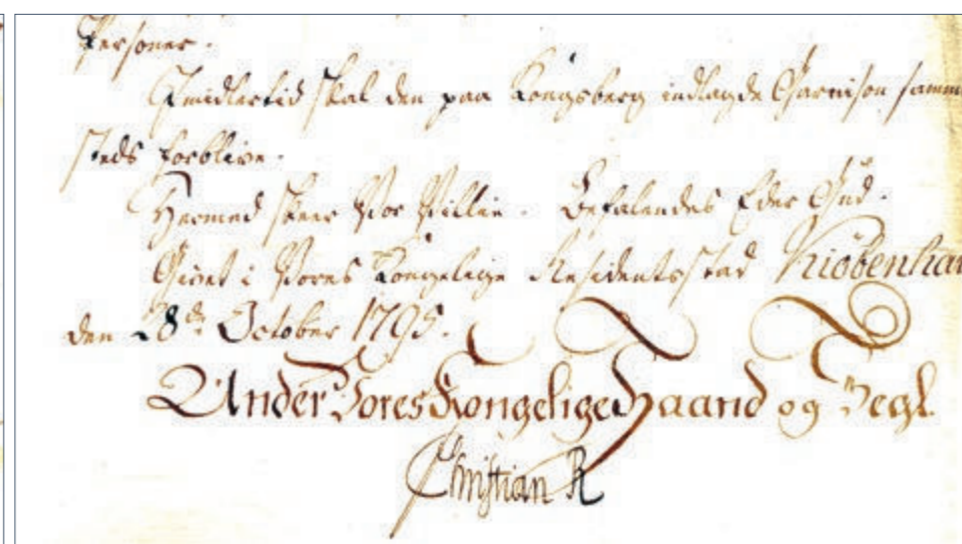 Personer.
Imidlertid skal den paa Kongsberg indlagde Garnison samm
steds forblive.
Hermed skeer Vor Villie. Befalendes Eder Gud.
Givet i Vores Kongelige Residentsstad Kiöbenhav
den 28de October 1795.
Under Vores Kongelige Haand og Segl.
Christian R